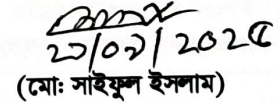 ২১/০১/২০২৫
(মোঃ সাইফুল ইসলাম)